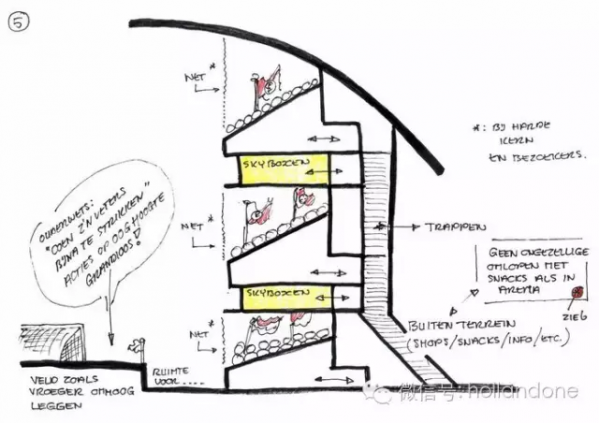 5
NET*
*: BIJ HARDE
KERN
EN BEZOEKERS.
SKYBOXEN
OUDERWETS:
"COEN Z'N VETERS
BIJNA TE STRIKKEN"
ACTIES OP OOGHOOGTE
GRANDIOOS!
NET*
TRAPPEN
GEEN ONGEZELLIGE
OMLOPEN MET
SNACKS ALS IN
ARENA
ZIEG
SKYBOXEN
NET*
BUITEN TERREIN
(SHOPS/SNACKS/INFO/ETC.)
VELD ZOALS
VROEGER OMHOOG
LEGGEN
RUIMTE
VOOR.....
微信号: hollandone